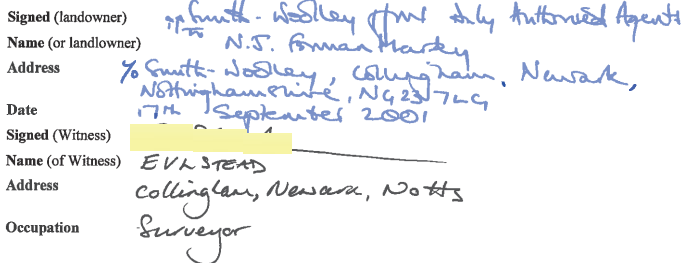 Signed (landowner) pp Smith-Woolley Duly Authorised Agents
Name (or landlowner) to N.J. Forman Hardy
Address c/o Smith-Woolley, Collingham, Newark,
Nottinghamshire, NG23 7LG
Date 17th September 2001
Signed (Witness)
Name (of Witness) EVLSTEAD
Address Collingham, Newark, Notts
Occupation Surveyor